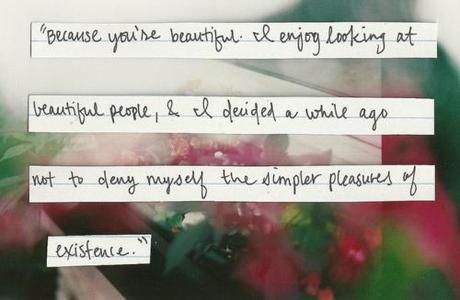 "Because you're beautiful. I enjoy looking at
beautiful people, & I decided a while ago
not to deny myself the simpler pleasures of
existence."